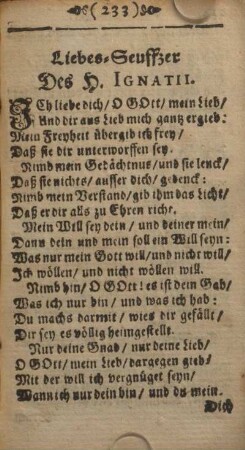 (233)
Liebes-Seuffzer
Des H. IGNATII.
ICh liebe dich / O GOtt / mein Lieb /
Und dir aus Lieb mich gantz ergieb:
Mein Freyheit übergib ich frey /
Daß sie dir unterworffen sey.
Nimb mein Gedächtnus / und sie lenck /
Daß sie nichts / ausser dich / gedenck:
Nimb mein Verstand / gib ihm das Licht /
Daß er dir alls zu Ehren richt.
Mein Will sey dein / und deiner mein /
Dann dein und mein soll ein Will seyn:
Was nur mein Gott will / und nicht will /
Ich wöllen / und nicht wöllen will.
Nimb hin / O GOtt: es ist dein Gab /
Was ich nur bin / und was ich hab:
Du machs darmit / wies dir gefällt /
Dir sey es völlig heimgestellt.
Nur deine Gnad / nur deine Lieb /
O GOtt / mein Lieb / dargegen gieb /
Mit der will ich vergnüget seyn /
Wann ich nur dein bin / und du mein.
Dich